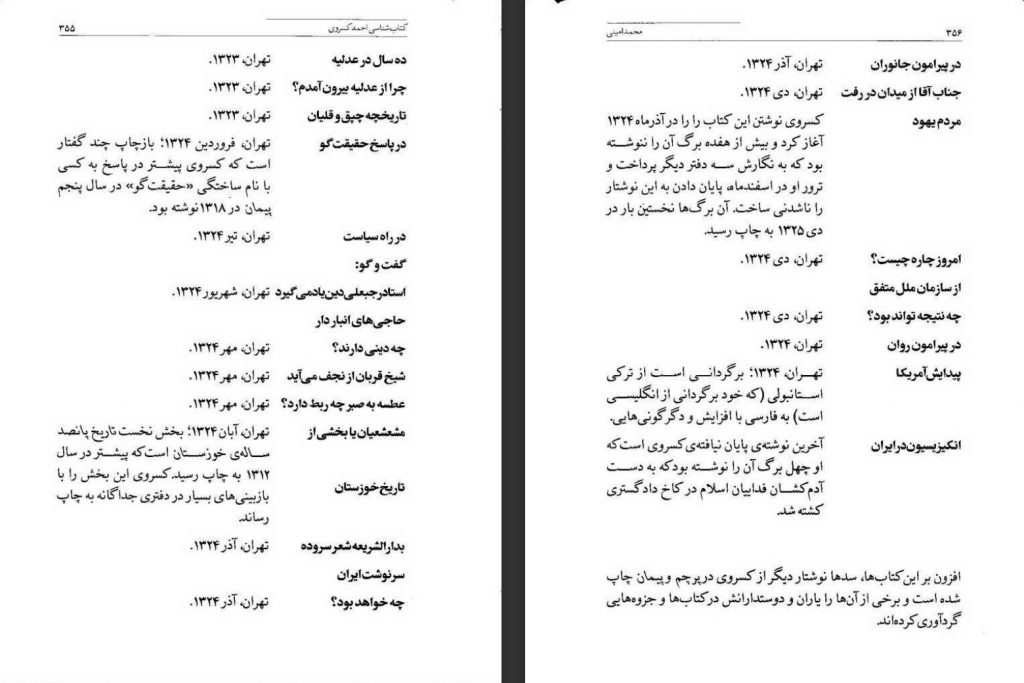 کتاب‌شناسی احمد کسروی ۳۵۵
ده سال در عدلیه تهران، ۱۳۲۳.
چرا از عدلیه بیرون آمدم؟ تهران، ۱۳۲۳.
تاریخچه چپق و قلیان تهران، ۱۳۲۳.
در پاسخ حقیقت‌گو تهران، فروردین ۱۳۲۴؛ بازچاپ چند گفتار
است که کسروی پیشتر در پاسخ به کسی
با نام ساختگی «حقیقت‌گو» در سال پنجم
پیمان در ۱۳۱۸ نوشته بود.
در راه سیاست تهران، تیر ۱۳۲۴.
گفت و گو:
استادرجبعلی دین یادمی‌گیرد تهران، شهریور ۱۳۲۴.
حاجی‌های انبار دار
چه دینی دارند؟ تهران، مهر ۱۳۲۴.
شیخ قربان از نجف می‌آید تهران، مهر ۱۳۲۴.
عطسه به صبر چه ربط دارد؟ تهران، مهر ۱۳۲۴.
مشعشعیان یا بخشی از تهران، آبان ۱۳۲۴؛ بخش نخست تاریخ پانصد
ساله‌ی خوزستان است‌که پیشتر در سال
۱۳۱۲ به چاپ رسید.کسروی این بخش را با
تاریخ خوزستان بازبینی‌های بسیار در دفتری جداگانه به چاپ
رساند.
بدارالشریعه شعر سروده تهران، آذر ۱۳۲۴.
سرنوشت ایران
چه خواهد بود؟ تهران، آذر ۱۳۲۴.
۳۵۶ محمد امینی
در پیرامون جانوران تهران، آذر ۱۳۲۴.
جناب آقا از میدان در رفت تهران، دی ۱۳۲۴.
مردم یهود کسروی نوشتن این کتاب را را در آذرماه ۱۳۲۴
آغاز کرد و بیش از هفده برگ آن را ننوشته
بود که به نگارش سه دفتر دیگر پرداخت و
ترور او در اسفندماه، پایان دادن به این نوشتار
را ناشدنی ساخت. آن برگ‌ها نخستین بار در
دی ۱۳۲۵ به چاپ رسید.
امروز چاره چیست؟ تهران، دی ۱۳۲۴.
از سازمان ملل متفق
چه نتیجه تواند بود؟ تهران، دی ۱۳۲۴.
در پیرامون روان تهران، ۱۳۲۴.
پیدایش آمریکا تهران، ۱۳۲۴؛ برگردانی است از ترکی
استانبولی (که خود برگردانی از انگلیسی
است) به فارسی با افزایش و دگرگونی‌هایی.
انکیزیسیون در ایران آخرین نوشته‌ی پایان نیافته‌ی کسروی است‌که
او چهل برگ آن را نوشته بودکه به دست
آدم‌کشان فداییان اسلام در کاخ دادگستری
کشته شد.
افزون بر این کتاب‌ها، سدها نوشتار دیگر از کسروی در پرچم و پیمان چاپ
شده است و برخی از آن‌ها را یاران و دوستدارانش در کتاب‌ها و جزوه‌هایی
گردآوری کرده‌اند.